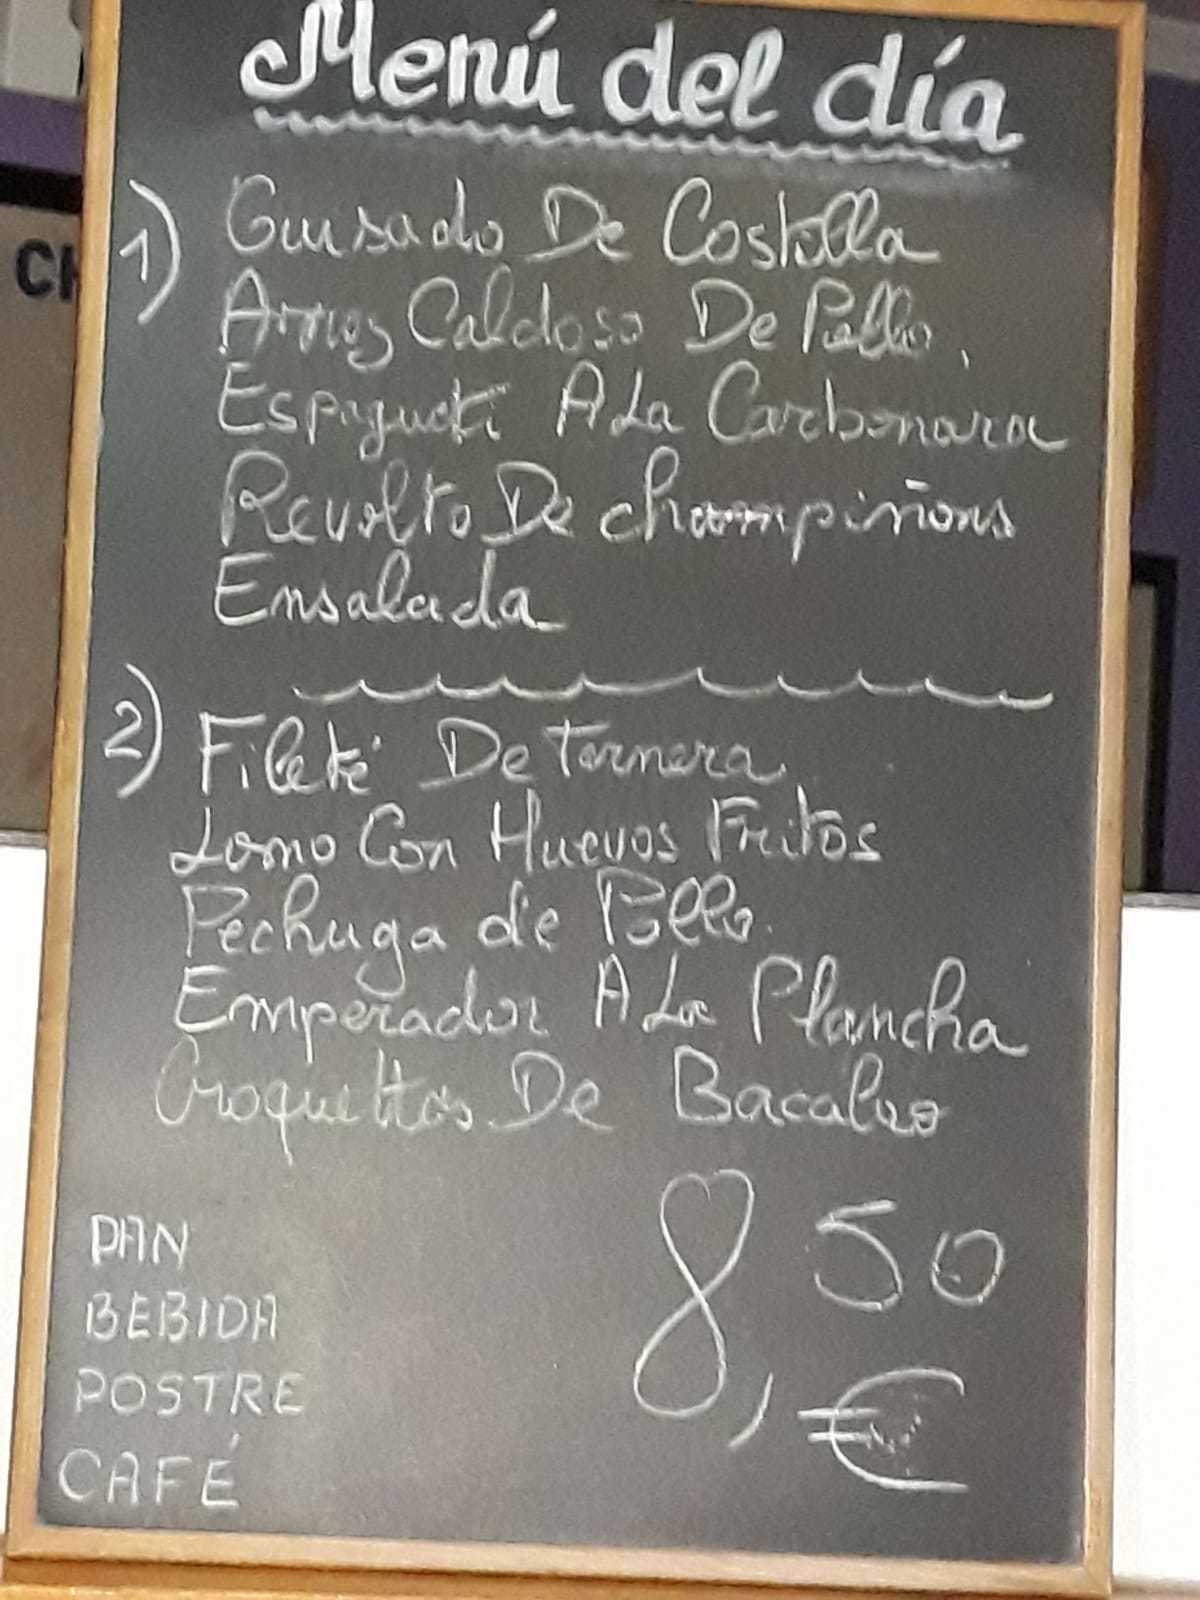 Menú del día
1) Guisado De Costilla
Arroz Caldoso De Pollo.
Espagueti A La Carbonara
Revolto De champiñons
Ensalada
2) Fileté De Ternera
Lomo Con Huevos Fritos
Pechuga de Pollo.
Emperador A La Plancha
Croquettas De Bacalao
PAN
BEBIDA
POSTRE
CAFÉ
8,50
€
CH